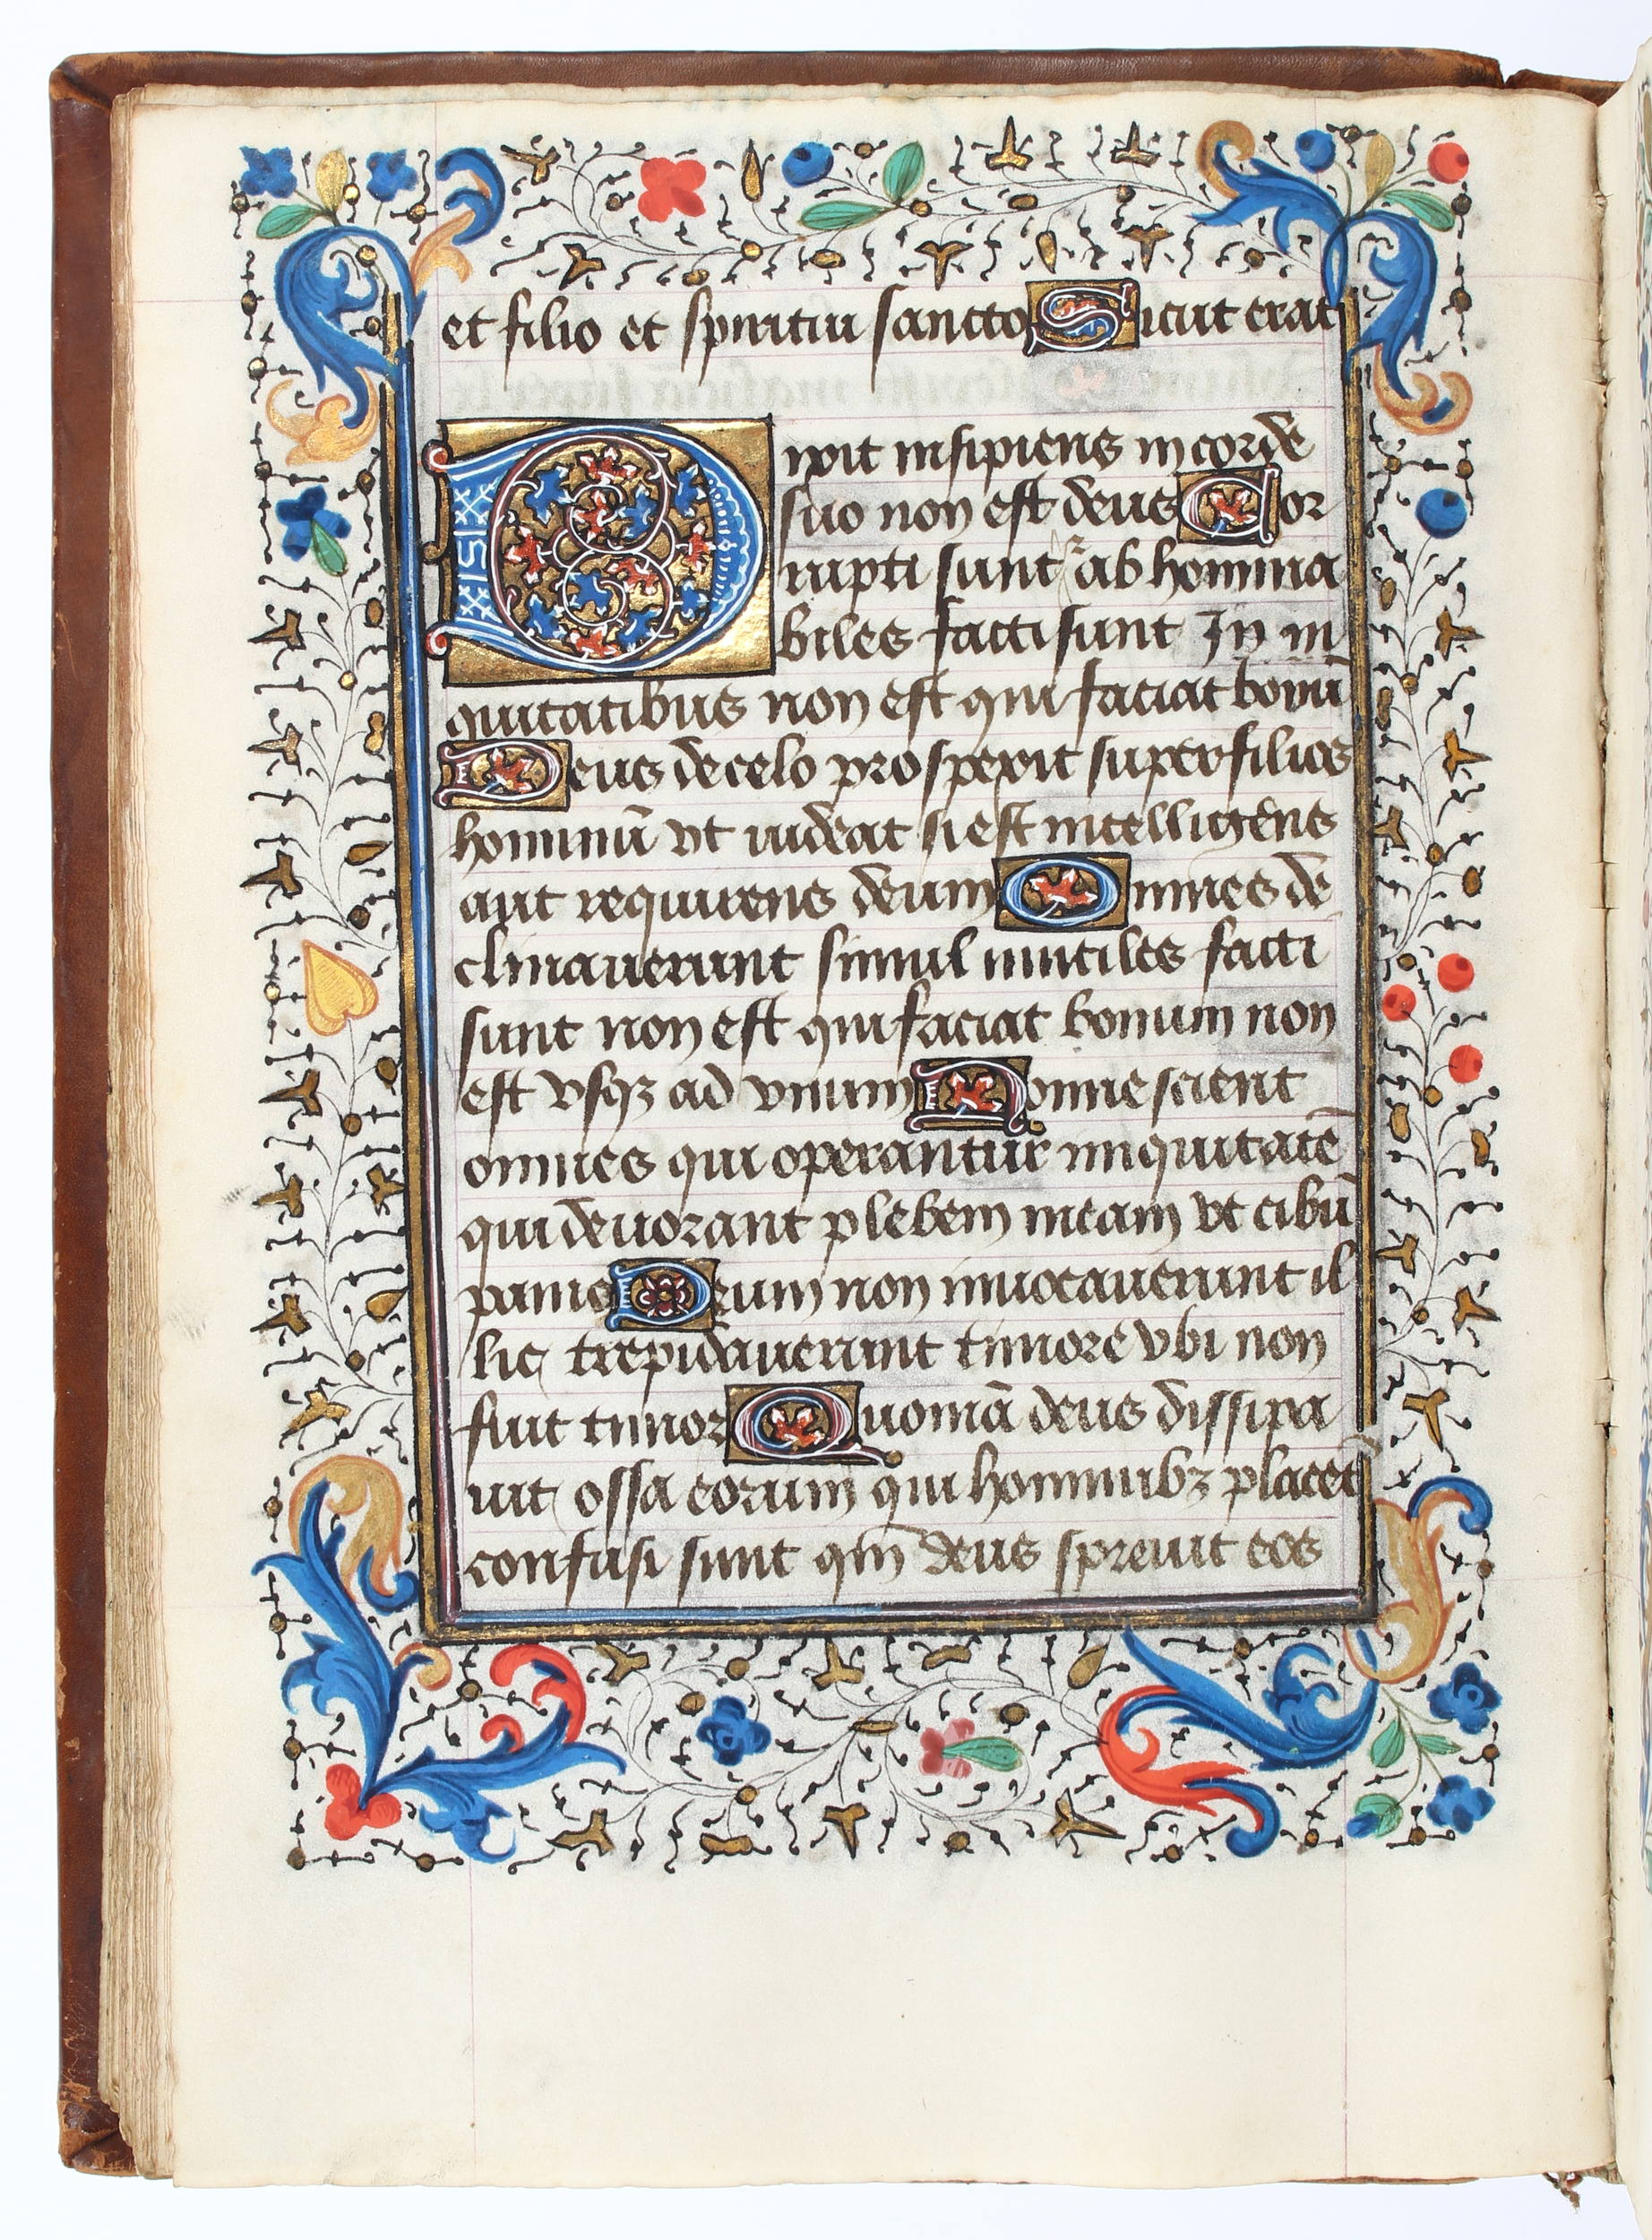 et filio et spiritui sancto Sicut erat
Dixit insipiens in corde
suo non est deus Cor
rupti sunt et abhomina
biles facti sunt In ini
quitatibus non est qui faciat bonū
Deus de celo prospexit super filios
hominū vt videat si est intelligens
aut requirens deum Omnes de
clinauerunt simul inutiles facti
sunt non est qui faciat bonum non
est vsqꝫ ad vnum Nonne scient
omnes qui operantur iniquitatē
qui deuorant plebem meam vt cibū
panis Deum non inuocauerunt il
lic trepidauerunt timore vbi non
fuit timor Quoniā deus dissipa
uit ossa eorum qui hominibꝫ placēt
confusi sunt qm̄ deus spreuit eos